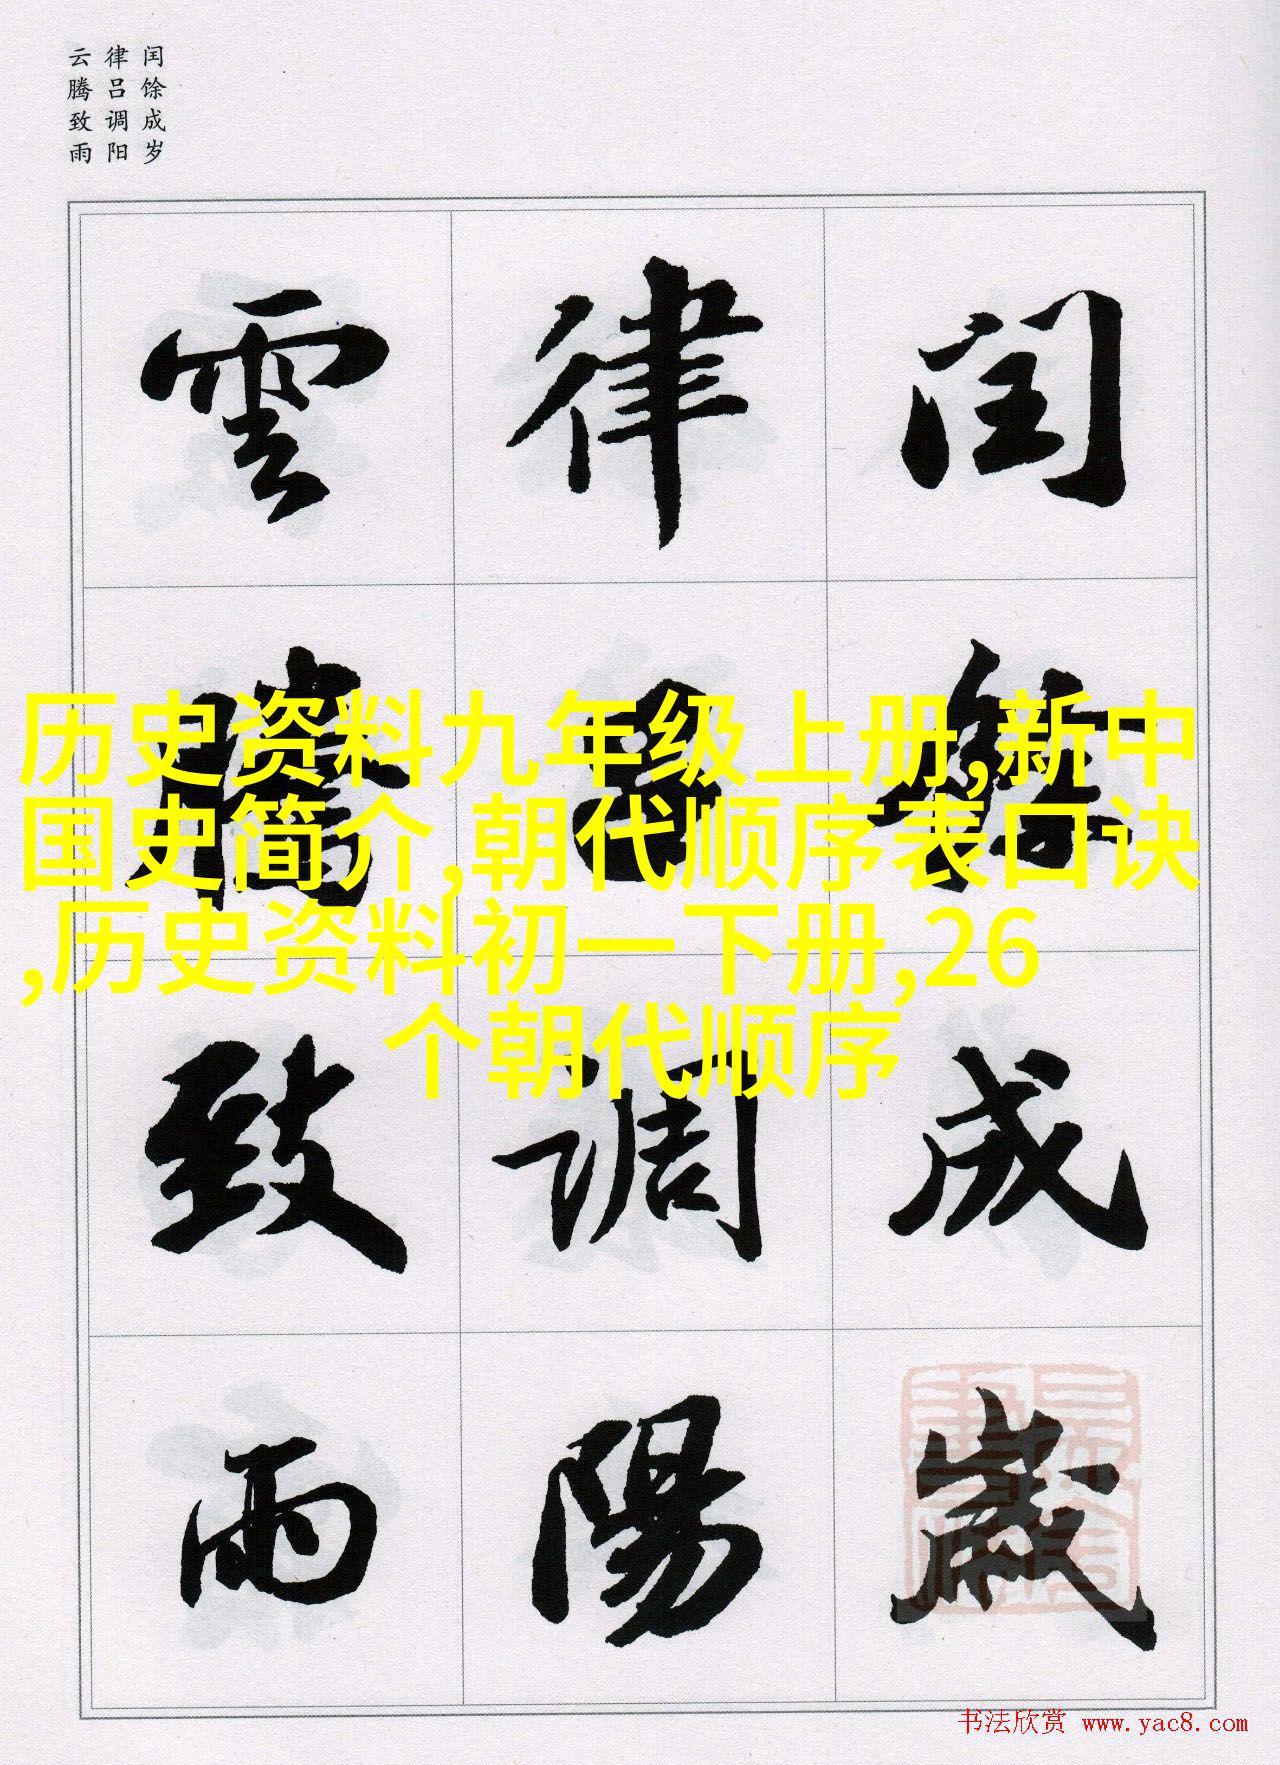 闰馀成岁
律吕调阳
云腾致雨
閏餘成歲
律呂調陽
雲騰致雨
历史资料九年级上册,新中
国史简介,朝代顺序表口诀
,历史资料初一下册,26
个朝代顺序
书法欣赏 www.yac8.com